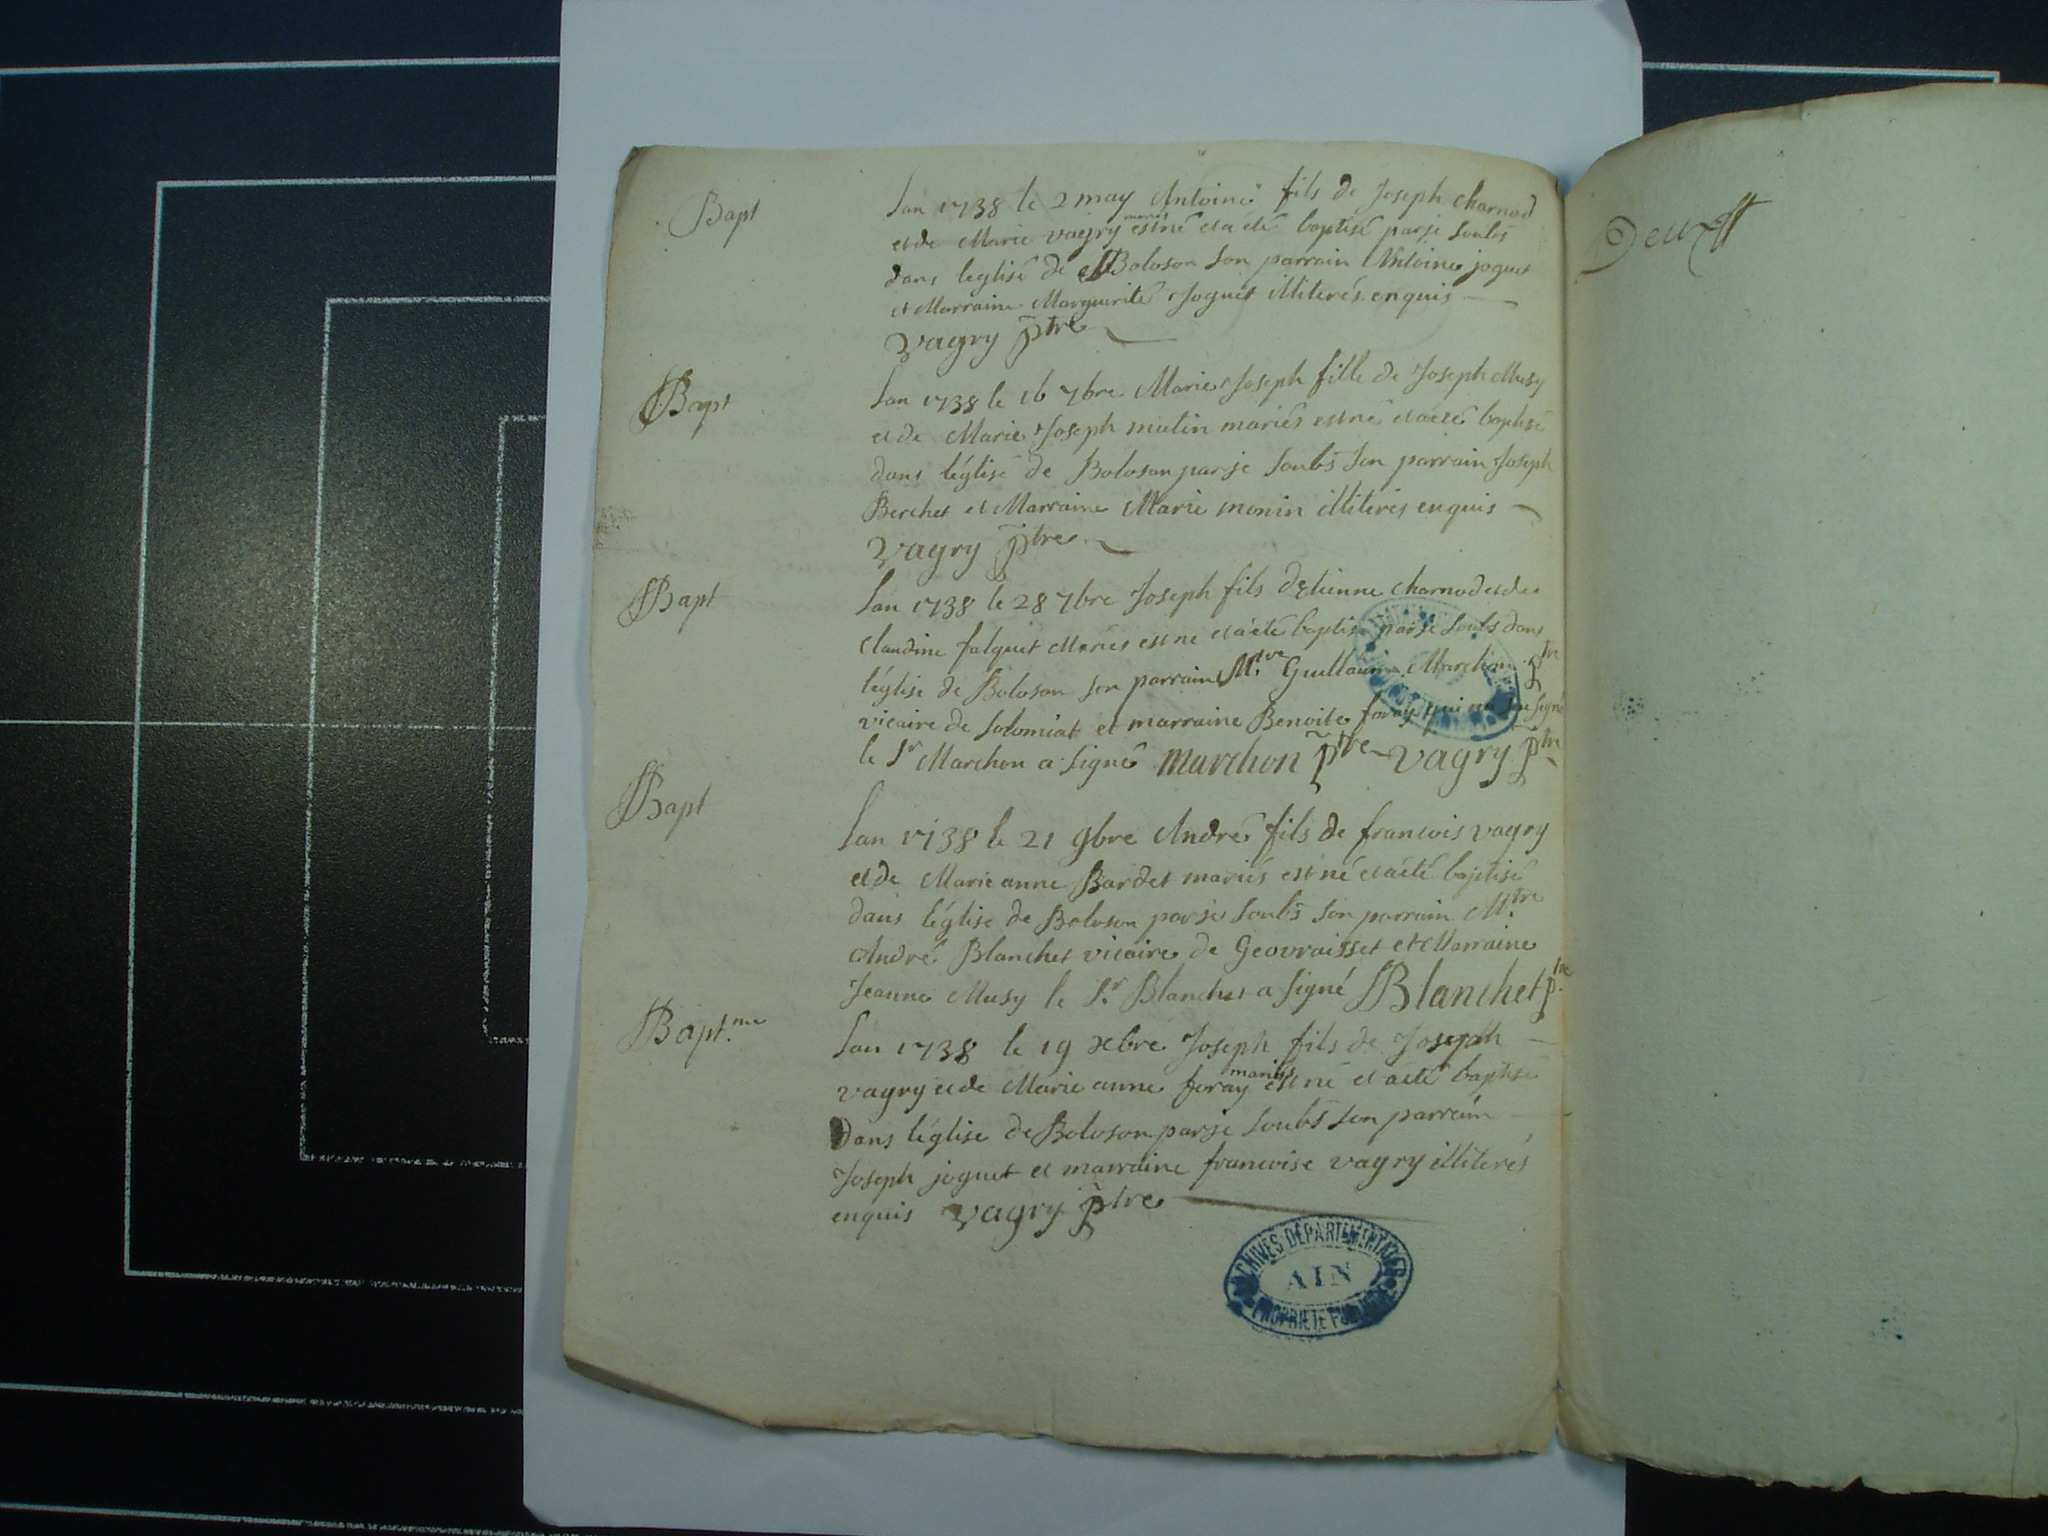 Bapt
Lan 1738 le 2 may Antoine fils de Joseph Charnod
et de Marie vagry mariés est né et a eté baptisé par je soubs
dans leglise de Boloson son parrain Antoine joguet
et Marraine Marguerite Joguet illiterés enquis
vagry ptre
Bapt
Lan 1738 le 16 7bre Marie Joseph fille de Joseph Musy
et de Marie Joseph mutin mariés est né et a eté baptisé
dans léglise de Boloson par je soubs son parrain Joseph
Berchet et Marraine Marie monin illiterés enquis
vagry ptre
Bapt
Lan 1738 le 28 7bre Joseph fils dEtienne Charnod et de
Claudine falquet Mariés est né et a eté baptisé par je soubs dans
léglise de Boloson son parrain Mtre Guillaume Marchon ptre
vicaire de Solomiat et marraine Benoite foray qui signé
le Sr Marchon a signé Marchon ptre vagry ptre
Bapt
Lan 1738 le 21 9bre André fils de francois vagry
et de Marie anne Bardet mariés est né et a eté baptisé
dans léglise de Boloson par je soubs son parrain Mtre
André Blanchet vicaire de Geovraisset et Marraine
Jeanne Musy le Sr Blanchet a signé Blanchet ptre
Bapt.me
Lan 1738 le 19 xbre Joseph fils de Joseph
vagry et de Marie anne foray mariés est né et a eté baptisé
Dans léglise de Boloson par je soubs son parrain
Joseph joguet et marraine francoise vagry illiterés
enquis vagry ptre
ARCHIVES DÉPARTEMENTALES
AIN
PROPRIÉTÉ PUBLIQUE
Deux